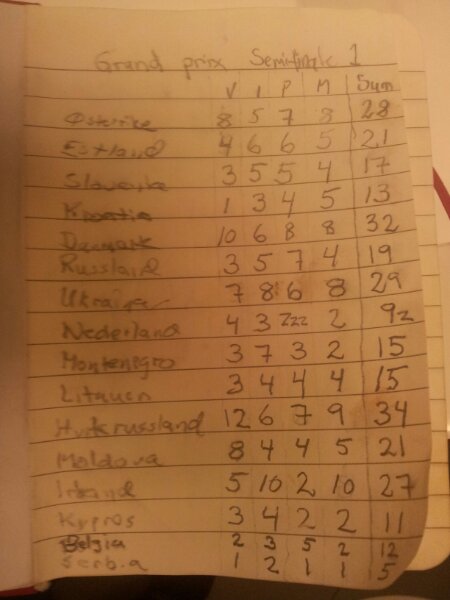 Grand prix Semifinale 1
V I P M Sum
Østerrike 8 5 7 8 28
Estland 4 6 6 5 21
Slovenia 3 5 5 4 17
Kroatia 1 3 4 5 13
Danmark 10 6 8 8 32
Russland 3 5 7 4 19
Ukraina 7 8 6 8 29
Nederland 4 3 zzz 2 9z
Montenigro 3 7 3 2 15
Litauen 3 4 4 4 15
Hviterussland 12 6 7 9 34
Moldova 8 4 4 5 21
Irland 5 10 2 10 27
Kypros 3 4 2 2 11
Belgia 2 3 5 2 12
Serbia 1 2 1 1 5